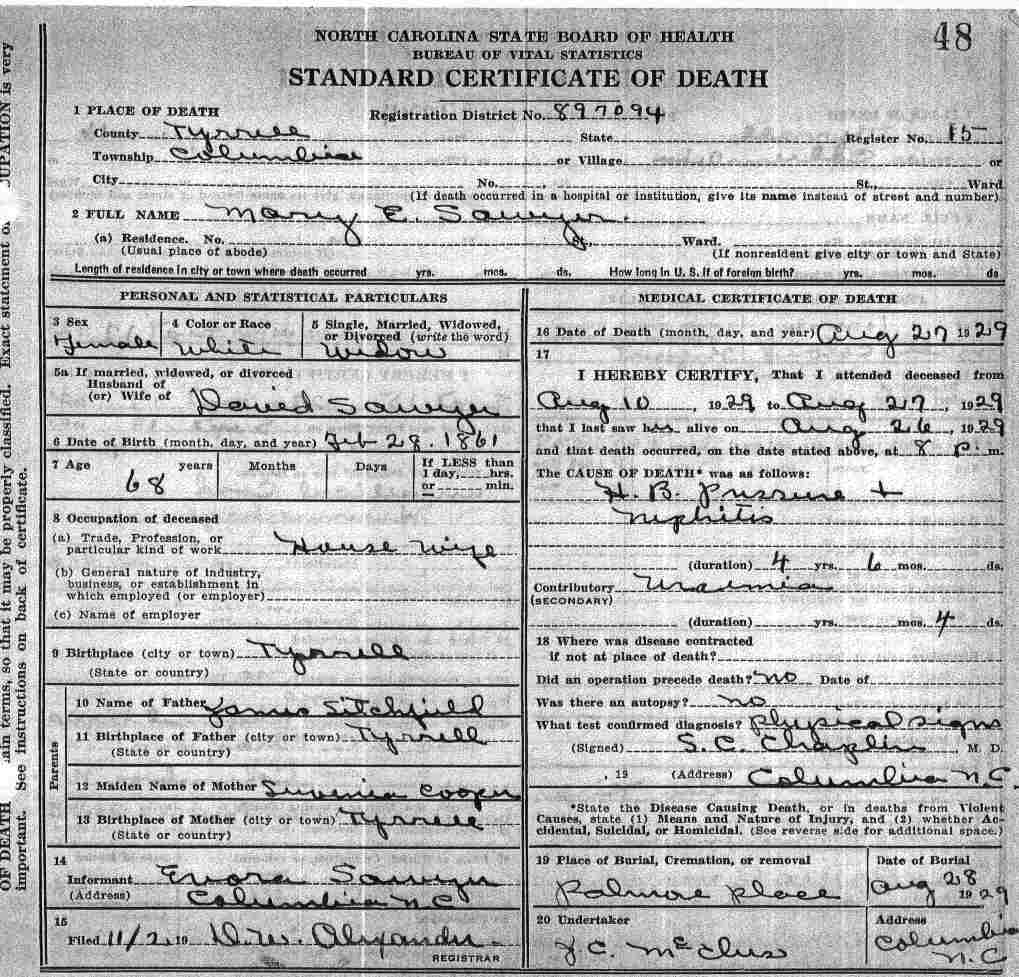 48
NORTH CAROLINA STATE BOARD OF HEALTH
BUREAU OF VITAL STATISTICS
STANDARD CERTIFICATE OF DEATH
1 PLACE OF DEATH
Registration District No. 897094
County Tyrrell State Register No. 15
Township Columbia or Village or
City No. , St., Ward
(If death occurred in a hospital or institution, give its name instead of street and number)
2 FULL NAME Mary E. Sawyer.
(a) Residence. No. St., Ward.
(Usual place of abode) (If nonresident give city or town and State)
Length of residence in city or town where death occurred yrs. mos. ds. How long in U. S. if of foreign birth? yrs. mos. ds
PERSONAL AND STATISTICAL PARTICULARS
3 Sex
Female
4 Color or Race
White
5 Single, Married, Widowed,
or Divorced (write the word)
Widow
5a If married, widowed, or divorced
Husband of
(or) Wife of David Sawyer
6 Date of Birth (month, day, and year) Feb 28. 1861
7 Age years Months Days If LESS than
1 day, hrs.
or min.
68
8 Occupation of deceased
(a) Trade, Profession, or
particular kind of work House Wife
(b) General nature of industry,
business, or establishment in
which employed (or employer)
(c) Name of employer
9 Birthplace (city or town) Tyrrell
(State or country)
Parents
10 Name of Father James Litchfield
11 Birthplace of Father (city or town) Tyrrell
(State or country)
12 Maiden Name of Mother Cooper
13 Birthplace of Mother (city or town) Tyrrell
(State or country)
14
Informant Sawyer
(Address) Columbia N C
15
Filed 11/2, 19 D. W. Alexander
REGISTRAR
MEDICAL CERTIFICATE OF DEATH
16 Date of Death (month, day, and year) Aug 27 1929
17
I HEREBY CERTIFY, That I attended deceased from
Aug 10, 1929 to Aug 27, 1929
that I last saw h alive on Aug 26, 1929
and that death occurred, on the date stated above, at 8 P. m.
The CAUSE OF DEATH* was as follows:
H. B. Pressure +
Nephitis
(duration) 4 yrs. 6 mos. ds.
Contributory Uraemia
(SECONDARY)
(duration) yrs. mos. 4 ds.
18 Where was disease contracted
if not at place of death?
Did an operation precede death? no Date of
Was there an autopsy? no
What test confirmed diagnosis? Physical signs
(Signed) S. C. Chaplin M. D.
, 19 (Address) Columbia N.C.
*State the Disease Causing Death, or in deaths from Violent
Causes, state (1) Means and Nature of Injury, and (2) whether Ac-
cidental, Suicidal, or Homicidal. (See reverse side for additional space.)
19 Place of Burial, Cremation, or removal
place
Date of Burial
Aug 28
1929
20 Undertaker
J C.
Address
Columbia
N. C
OF DEATH ain terms, so that it may be properly classified. Exact statement o. UPATION is very
important. See instructions on back of certificate.